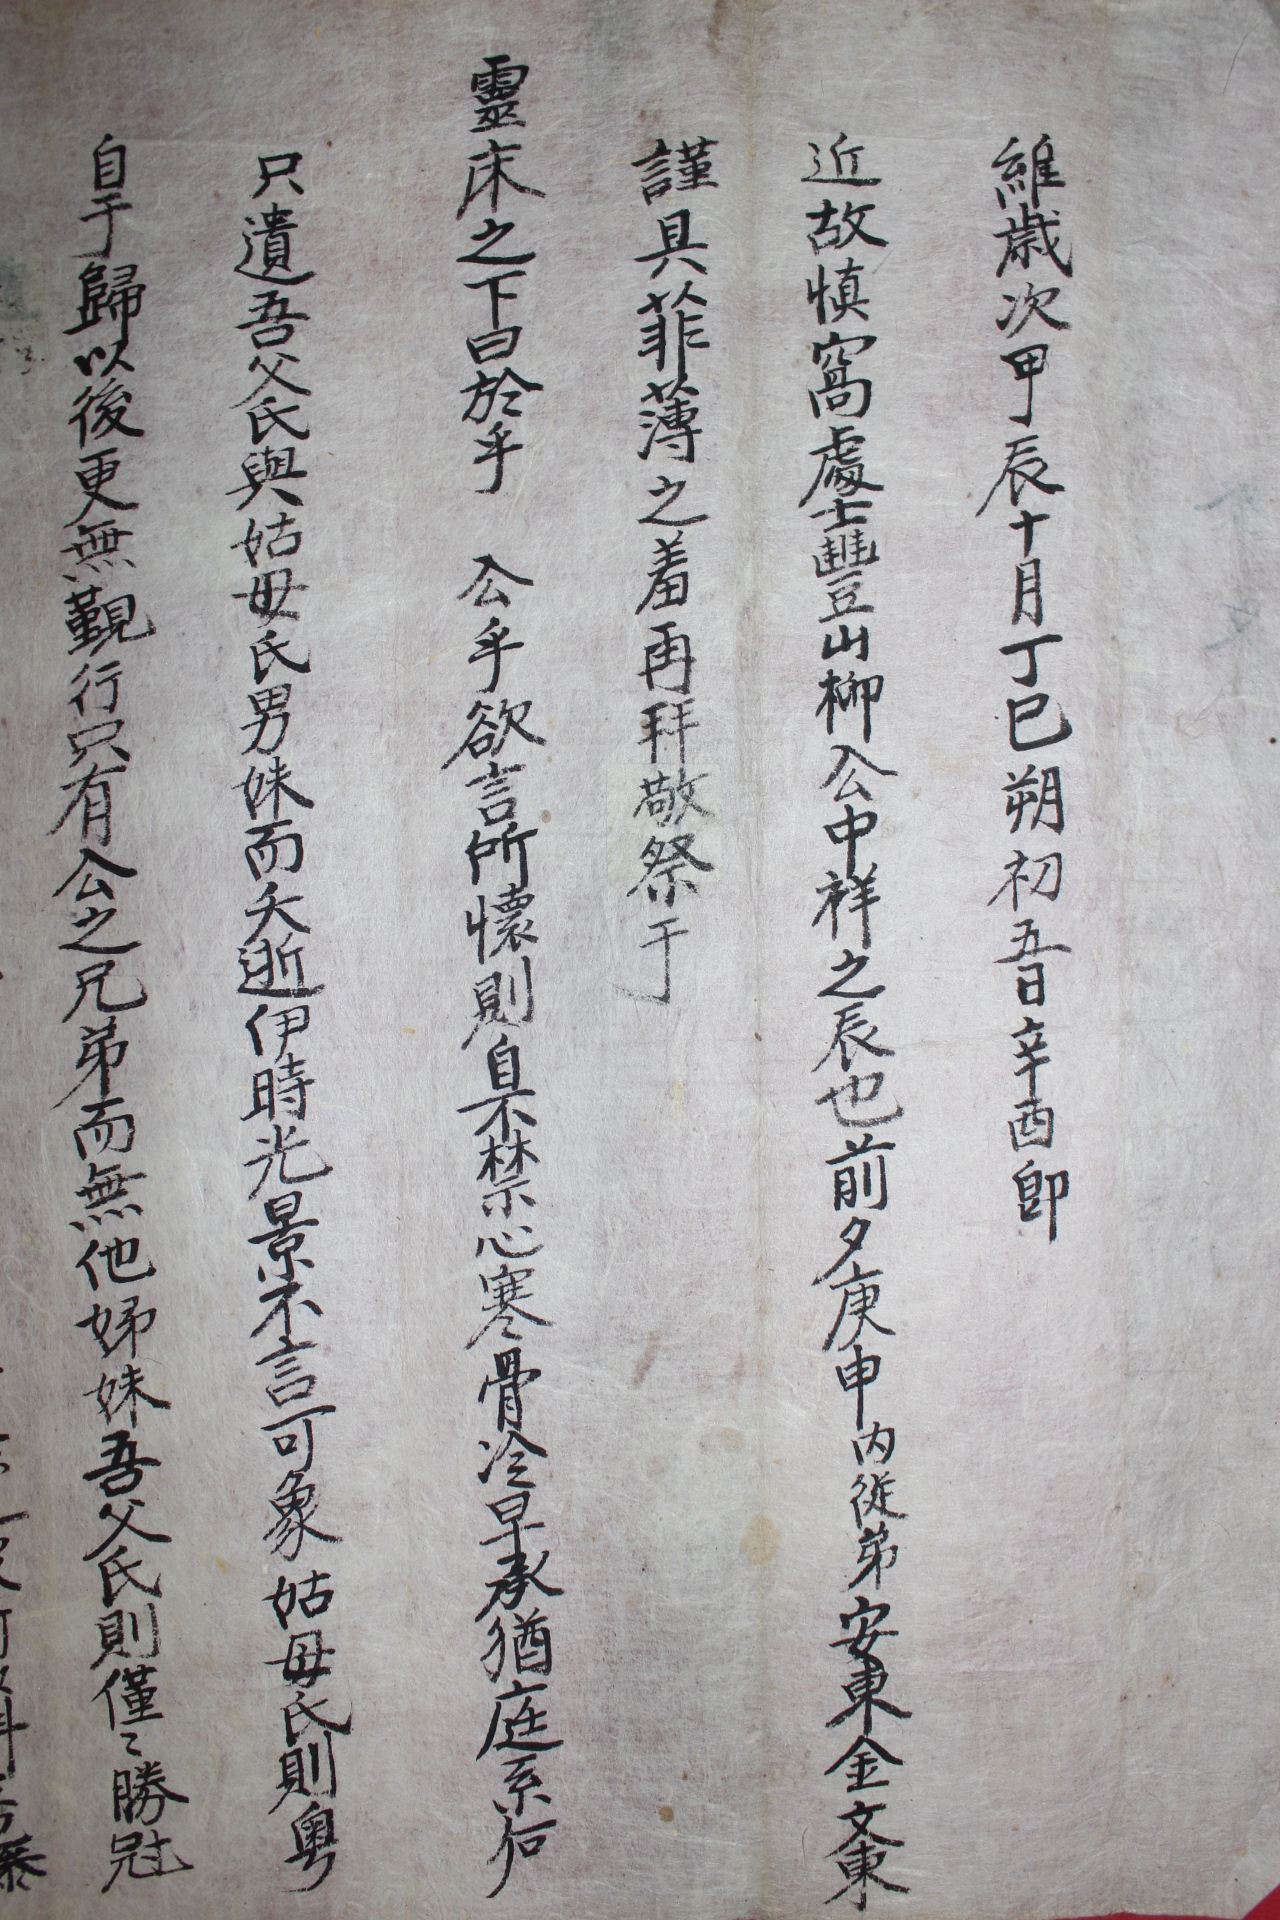 維歲次甲辰十月丁巳朔初五日辛酉卽
近故愼窩處士豐山柳公中祥之辰也前夕庚申內從弟安東金文東
謹具菲薄之羞再拜敬祭于
靈床之下曰於乎 公乎欲言所懷則自不禁心寒骨冷早承猶庭系何
只遺吾父氏與姑母氏男妹而夭逝伊時光景不言可象姑母氏則粤
自于歸以後更無覲行只有公之兄弟而無他姊妹吾父氏則僅〻勝冠